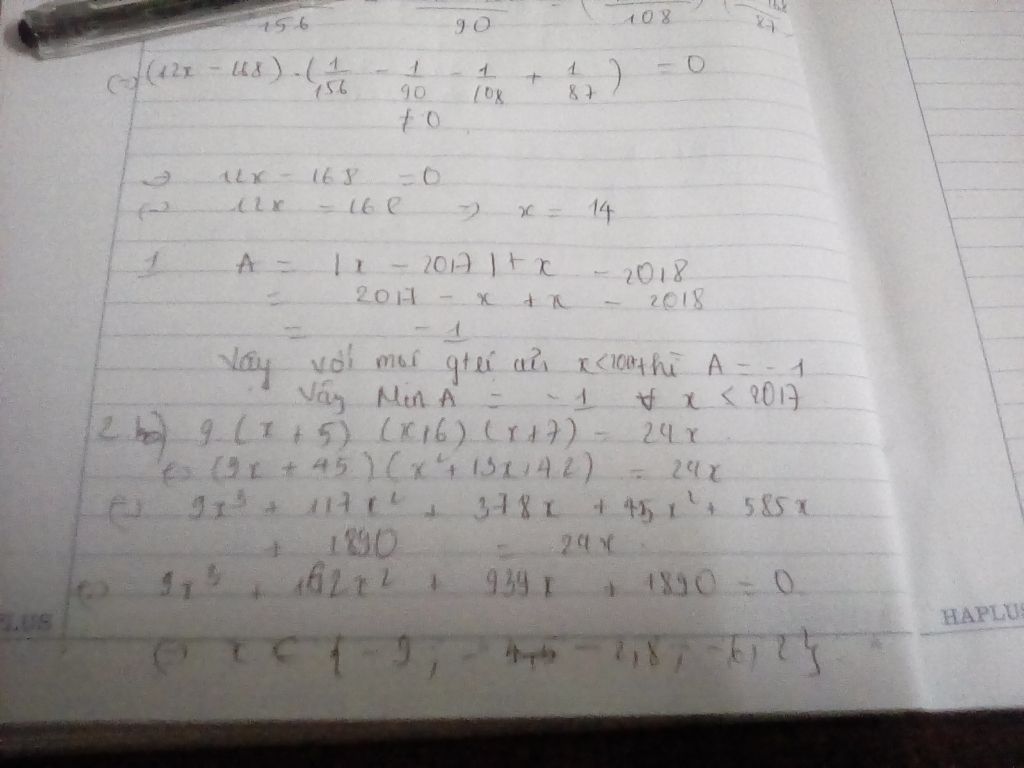 156 90 108 87
(=) (12x - 168) . (1/156 - 1/90 - 1/108 + 1/87) = 0
≠ 0
=> 12x - 168 = 0
(=) 12x = 168 => x = 14
1 A = |x - 2017| + x - 2018
= 2017 - x + x - 2018
= - 1
Vậy với mọi gtrị của x < 2017 thì A = - 1
Vậy Min A = - 1 ∀ x < 2017
2 b) 9 (x + 5) (x+6) (x+7) = 24x
(=) (9x + 45) (x² + 13x + 42) = 24x
(=) 9x³ + 117x² + 378x + 45x² + 585x
+ 1890 = 24x
(=) 9x³ + 162x² + 939x + 1890 = 0
HAPLUS
(=) x ∈ { - 9 ; - 2,8 ; -6,2}